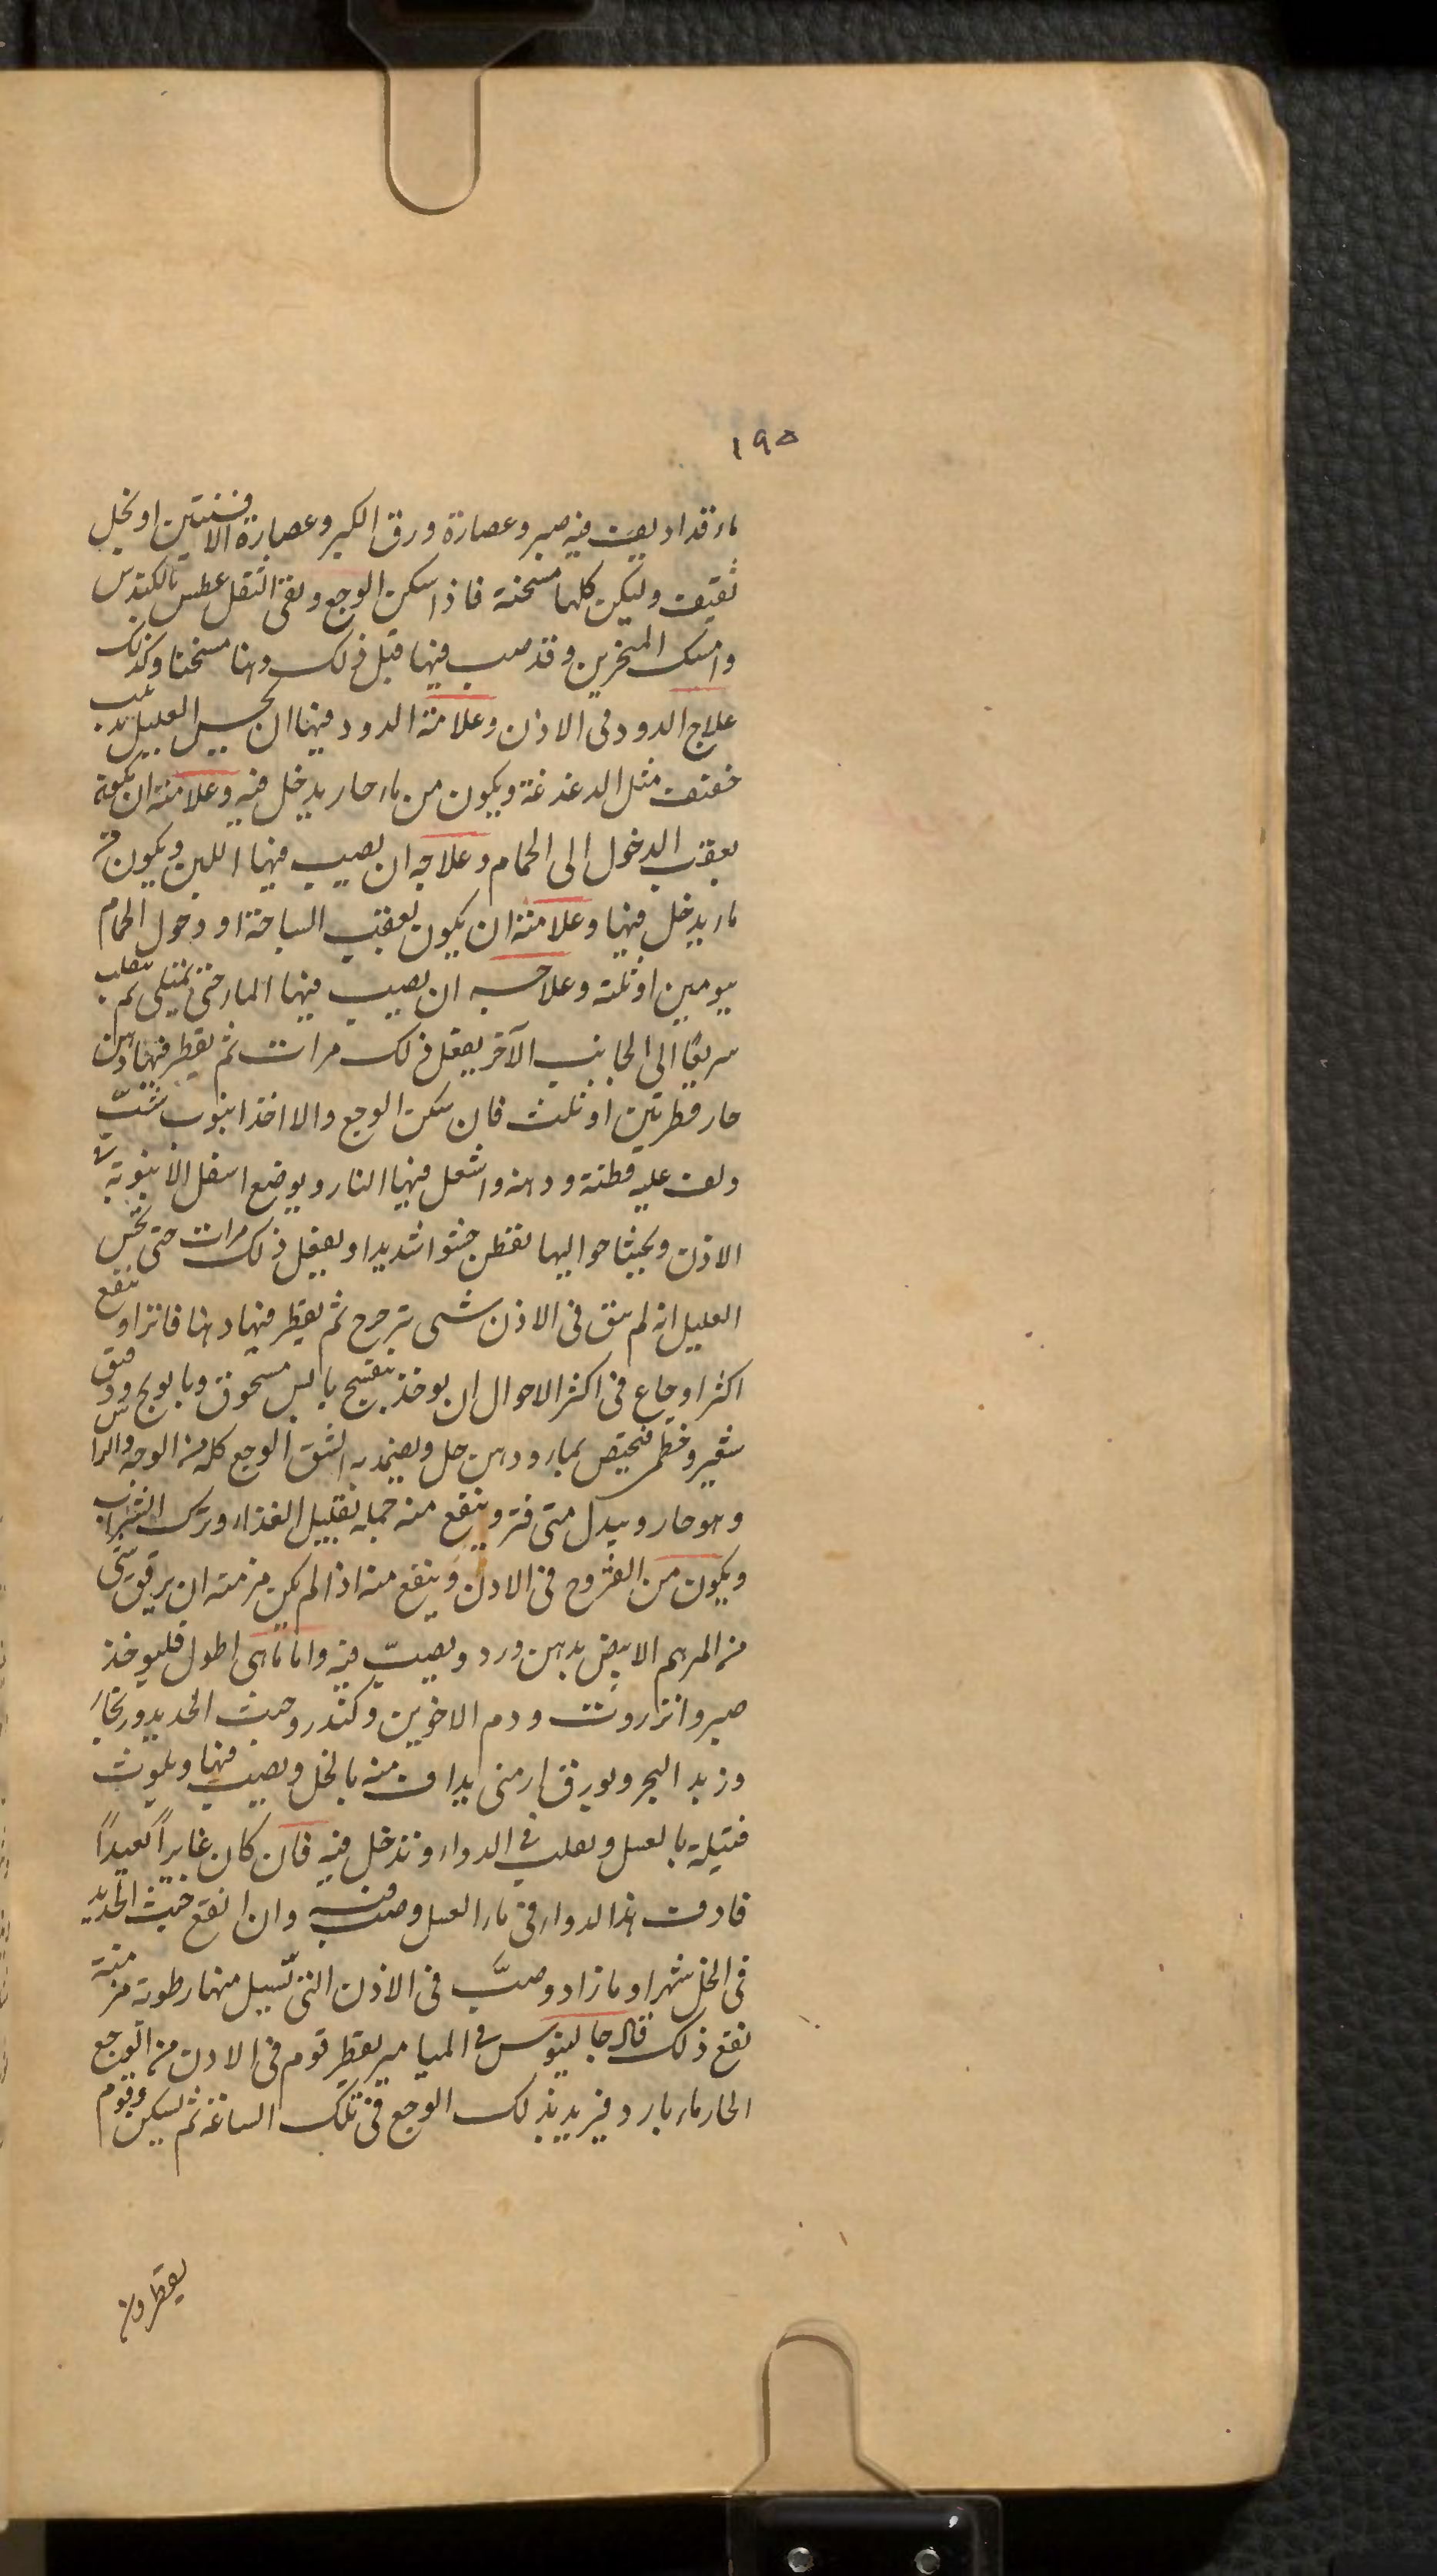 ١٩٥
ماء قد اديف فيه صبر وعصارة ورق الكبر وعصارة الافسنتين او بخل
ثقيف وليكن كلها مسخنة فاذا سكن الوجع وبقى الثقل عطس بالكندس
وامسك المنخرين وقد صب فيها قبل ذلك دهنا مسخنا وكذلك
علاج الدود فى الاذن وعلامة الدود فيها ان يحس العليل بدبيب
خفيف مثل الدغدغة ويكون من ماء حار يدخل فيه وعلامته ان يكون
بعقب الدخول الى الحمام وعلاجه ان يصب فيها اللبن ويكون من
ماء يدخل فيها وعلامته ان يكون بعقب السباحة او دخول الحمام
بيومين او ثلثة وعلاجه ان يصب فيها الماء حتى تمتلى ثم يقلب
سريعا الى الجانب الآخر يفعل ذلك مرات ثم يقطر فيها دهن
حار قطرتين او ثلث فان سكن الوجع والا اخذ انبوب شبث
ولف عليه قطنة ودهنه واشعل فيها النار ويوضع اسفل الانبوبة فى
الاذن ويحشا حواليها بقطن حشوا شديدا ويفعل ذلك مرات حتى يحس
العليل انه لم يبق فى الاذن شى يترجرح ثم يقطر فيها دهنا فاترا وينفع
اكثر اوجاع فى اكثر الاحوال ان يوخذ بنفسج يابس مسحوق وبابونج ودقيق
شعير وخطمى فيخبص بماء ودهن حل ويضمد به الشق الوجع كله من الوجه والراس
وهو حار ويبدل متى فتر وينفع منه جملة تقليل الغذاء وترك الشراب
ويكون من القروح فى الاذن وينفع منه اذا لم يكن مزمنة ان يرقق شى
من المرهم الابيض بدهن ورد ويصب فيه واما ما هى اطول فليوخذ
صبر وانزروت ودم الاخوين وكندر وخبث الحديد وزنجار
وزبد البحر وبورق ارمنى يداف منه بالخل ويصب فيها ويلوث
فتيلة بالعسل ويقلب فى الدواء وتدخل فيه فان كان غايرا بعيدا
فادف هذا الدواء فى ماء العسل وصب فيه وان انقع خبث الحديد
فى الخل شهرا وما زاد وصب فى الاذن التى تسيل منها رطوبة مزمنة
نفع ذلك قال جالينوس فى الميامير يقطر قوم فى الاذن من الوجع
الحار ماء بارد فيزيد بذلك الوجع فى تلك الساعة ثم يسكن وقوم
يقطرون